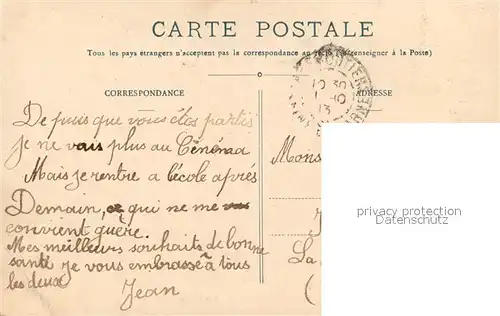 CARTE POSTALE
Tous les pays étrangers n'acceptent pas la correspondance au recto (Se renseigner à la Poste)
CORRESPONDANCE
ADRESSE
10 30
1 - 10
13
De puis que vous êtes partis
je ne vais plus au
Mais je rentre a l'école après
Demain, qui ne me
convient guère.
Mes meilleurs souhaits de bonne
santé je vous embrasse à tous
les deux
Jean
Mons
La
(
privacy protection
Datenschutz